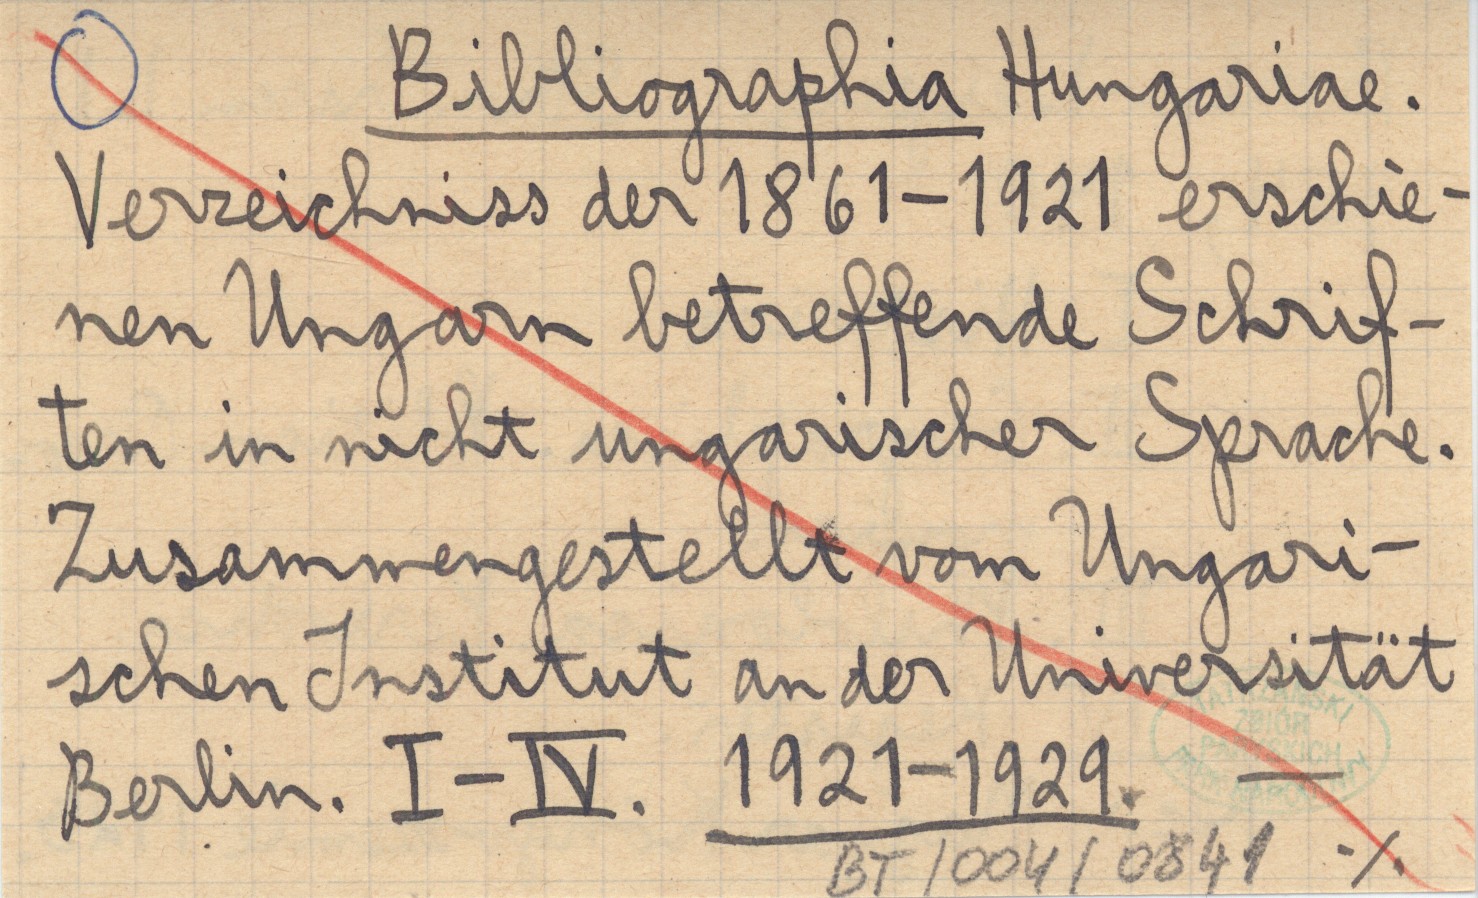 Bibliographia Hungariae.
Verzeichniss der 1861-1921 erschie-
nen Ungarn betreffende Schrif-
ten in nicht ungarischer Sprache.
Zusammengestellt vom Ungari-
schen Institut an der Universität
Berlin. I-IV. 1921-1929. —
TATRZAŃSKI
ZBIÓR
PARYSKICH
BT/004/0841 -/.